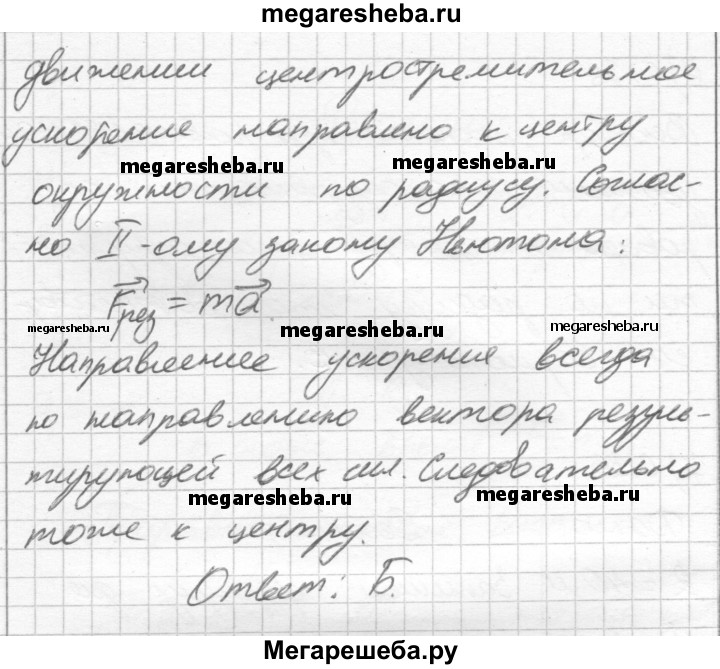 megaresheba.ru
движении центростремительное
ускорение направлено к центру
megaresheba.ru megaresheba.ru
окружности по радиусу. Соглас-
но II-ому закону Ньютона:
Fрез = ma
megaresheba.ru megaresheba.ru megaresheba.ru
Направление ускорения всегда
по направлению вектора резуль-
тирующей всех сил. Следовательно
megaresheba.ru megaresheba.ru
тоже к центру.
Ответ: Б.
Мегарешеба.ру